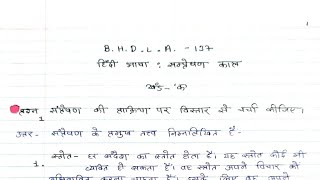 B.H.D.L.A. -137
हिंदी भाषा : सम्प्रेषण काल
खंड-'क'
प्रश्न संप्रेषण की प्रक्रिया पर विस्तार से चर्चा कीजिए।
उत्तर- संप्रेषण के प्रमुख तत्त्व निम्नलिखित हैं-
1. स्रोत- हर संदेश का स्रोत होता है। यह स्रोत कोई भी
व्यक्ति हो सकता है। वह स्रोत अपने विचार को